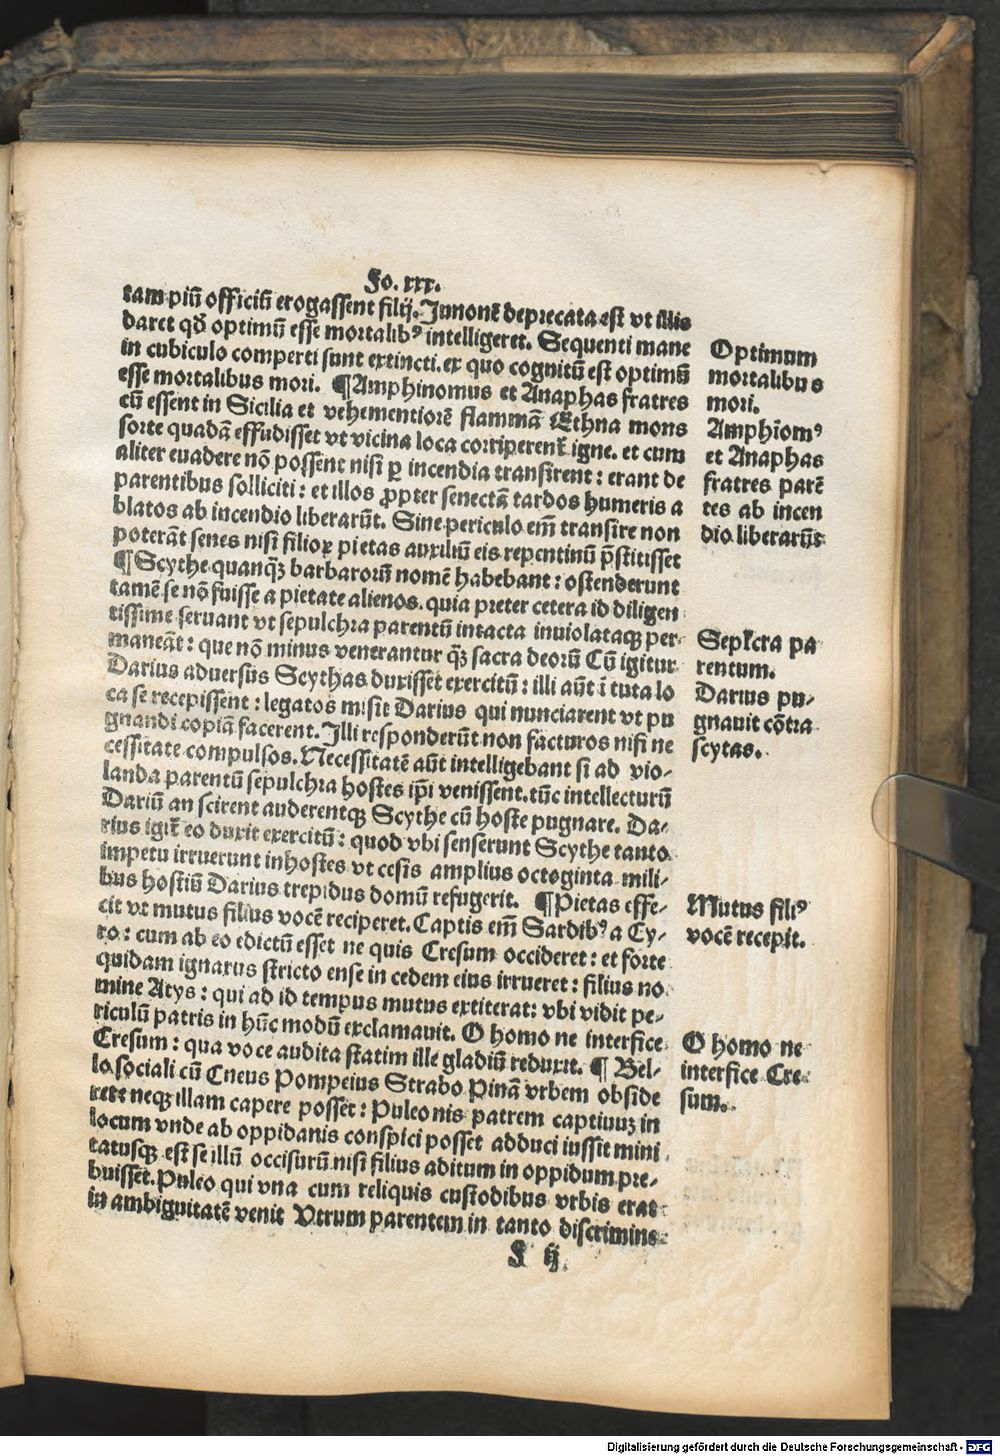 Fo. xxx.
tam piũ officiũ erogassent filij. Junonẽ deprecata est vt illis
daret qđ optimũ esse mortalibꝰ intelligeret. Sequenti mane
in cubiculo comperti sunt extincti. ex quo cognitũ est optimũ
esse mortalibus mori. ¶ Amphinomus et Anaphas fratres
cũ essent in Sicilia et vehementiorẽ flammã Ethna mons
sorte quadã effudisset vt vicina loca corriperent̃ igne. et cum
aliter euadere nõ possent nisi ꝑ incendia transirent : erant de
parentibus solliciti : et illos ꝓpter senectã tardos humeris a
blatos ab incendio liberarũt. Sine periculo em̃ transire non
poterãt senes nisi filioꝝ pietas auxiliũ eis repentinũ p̃stitisset
¶ Scythe quanqꝫ barbarorũ nomẽ habebant : ostenderunt
tamẽ se nõ fuisse a pietate alienos. quia preter cetera id diligen
tissime seruant vt sepulchra parentũ intacta inuiolataqꝫ per-
maneãt : que nõ minus venerantur qꝫ̃ sacra deorũ Cũ igitur
Darius aduersus Scythas duxisset exercitũ : illi aũt ĩ tuta lo
ca se recepissent : legatos misit Darius qui nunciarent vt pu
gnandi copiã facerent. Illi responderũt non facturos nisi ne
cessitate compulsos. Necessitatẽ aũt intelligebant si ad vio-
landa parentũ sepulchra hostes ip̃i venissent. tũc intellecturũ
Dariũ an scirent auderentqꝫ Scythe cũ hoste pugnare. Da-
rius igit̃ eo duxit exercitũ : quod vbi senserunt Scythe tanto
impetu irruerunt in hostes vt cesis amplius octoginta mili-
bus hostiũ Darius trepidus domũ refugerit. ¶ Pietas effe-
cit vt mutus filius vocẽ reciperet. Captis em̃ Sardibꝰ a Cy-
ro : cum ab eo edictũ esset ne quis Cresum occideret : et forte
quidam ignarus stricto ense in cedem eius irrueret : filius no
mine Atys : qui ad id tempus mutus extiterat : vbi vidit pe-
riculũ patris in hũc modũ exclamauit. O homo ne interfice
Cresum : qua voce audita statim ille gladiũ reduxit. ¶ Bel-
lo sociali cũ Cneus Pompeius Strabo Pinã vrbem obside
rete neqꝫ illam capere posset : Puleonis patrem captiuuꝫ in
locum vnde ab oppidanis conspici posset adduci iussit mini
tatusqꝫ est se illũ occisurũ nisi filius aditum in oppidum pre-
buisset. Puleo qui vna cum reliquis custodibus vrbis erat
in ambiguitatẽ venit Vtrum parentem in tanto discrimine
F ij.
Optimum
mortalibus
mori.
Amphiomꝰ
et Anaphas
fratres parẽ
tes ab incen
dio liberarũt
Sepl̃cra pa
rentum.
Darius pu-
gnauit cõtra
scytas.
Mutus filiꝰ
vocẽ recepit.
O homo ne
interfice Cre-
sum.
Digitalisierung gefördert durch die Deutsche Forschungsgemeinschaft - DFG